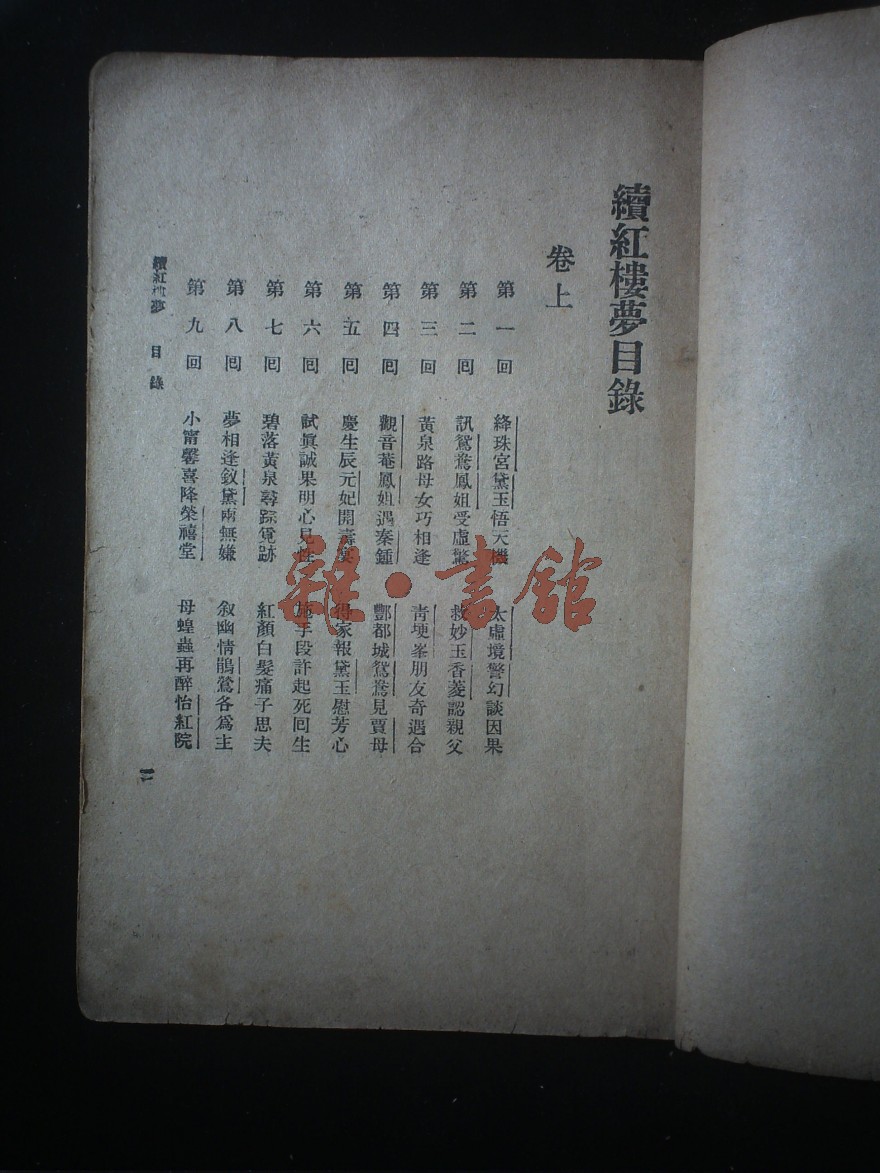 續紅樓夢目錄
卷上
第一回 絳珠宮黛玉悟天機 太虛境警幻談因果
第二囘 訊鴛鴦鳳姐受虛驚 救妙玉香菱認親父
第三回 黃泉路母女巧相逢 靑埂峯朋友奇遇合
第四囘 觀音菴鳳姐遇秦鍾 酆都城鴛鴦見賈母
第五囘 慶生辰元妃開壽宴 得家報黛玉慰芳心
第六囘 試眞誠果明心見性 施手段許起死囘生
第七囘 碧落黃泉尋踪覓跡 紅顏白髮痛子思夫
第八囘 夢相逢釵黛兩無嫌 敘幽情鵑鶯各爲主
第九回 小甯馨喜降榮禧堂 母蝗蟲再醉怡紅院
續紅樓夢 目錄
一
雜·書館